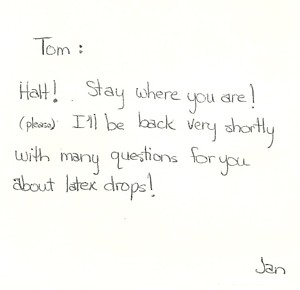 Tom :
Halt! . Stay where you are!
(please) I'll be back very shortly
with many questions for you
about latex drops!
Jan